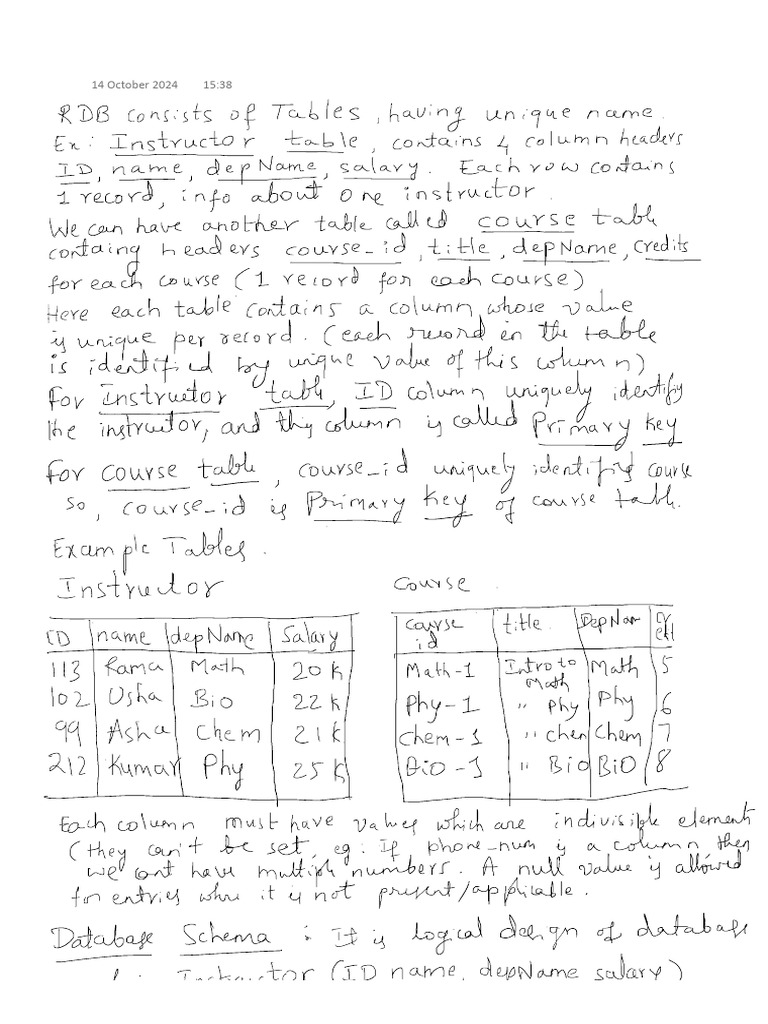 14 October 2024 15:38
RDB consists of Tables, having unique name.
Ex: Instructor table, contains 4 column headers
ID, name, depName, salary. Each row contains
1 record, info about one instructor.
We can have another table called course table
containg headers course_id, title, depName, credits
for each course (1 record for each course)
Here each table contains a column whose value
is unique per record. (each record in the table
is identified by unique value of this column)
For Instructor table, ID column uniquely identify
the instructor, and this column is called Primary key
For course table, course_id uniquely identifies course
so, course_id is Primary Key of course table.
Example Tables.
Instructor
ID name depName Salary
113 Rama Math 20K
102 Usha Bio 22K
99 Asha Chem 21K
212 Kumar Phy 25K
Course
course id title DepNam credit
Math-1 Intro to Math Math 5
Phy-1 " Phy Phy 6
Chem-1 " Chem Chem 7
Bio-1 " Bio Bio 8
Each column must have values which are indivisible element
(they can't be set, eg: If phone_num is a column then
we cant have multiple numbers. A null value is allowed
for entries where it is not present/applicable.
Database Schema : It is logical design of database
Instructor (ID name, depName salary)